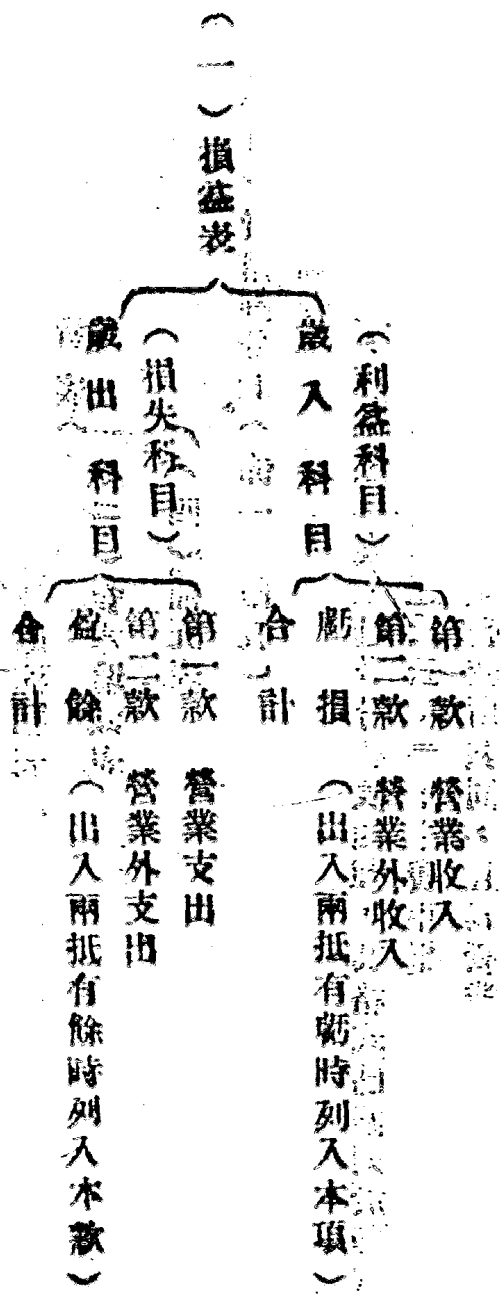 （一）損益表
（利益科目）
歲入科目
第一款　營業收入
第二款　營業外收入
虧損（出入兩抵有虧時列入本項）
合計
（損失科目）
歲出科目
第一款　營業支出
第二款　營業外支出
盈餘（出入兩抵有餘時列入本款）
合計